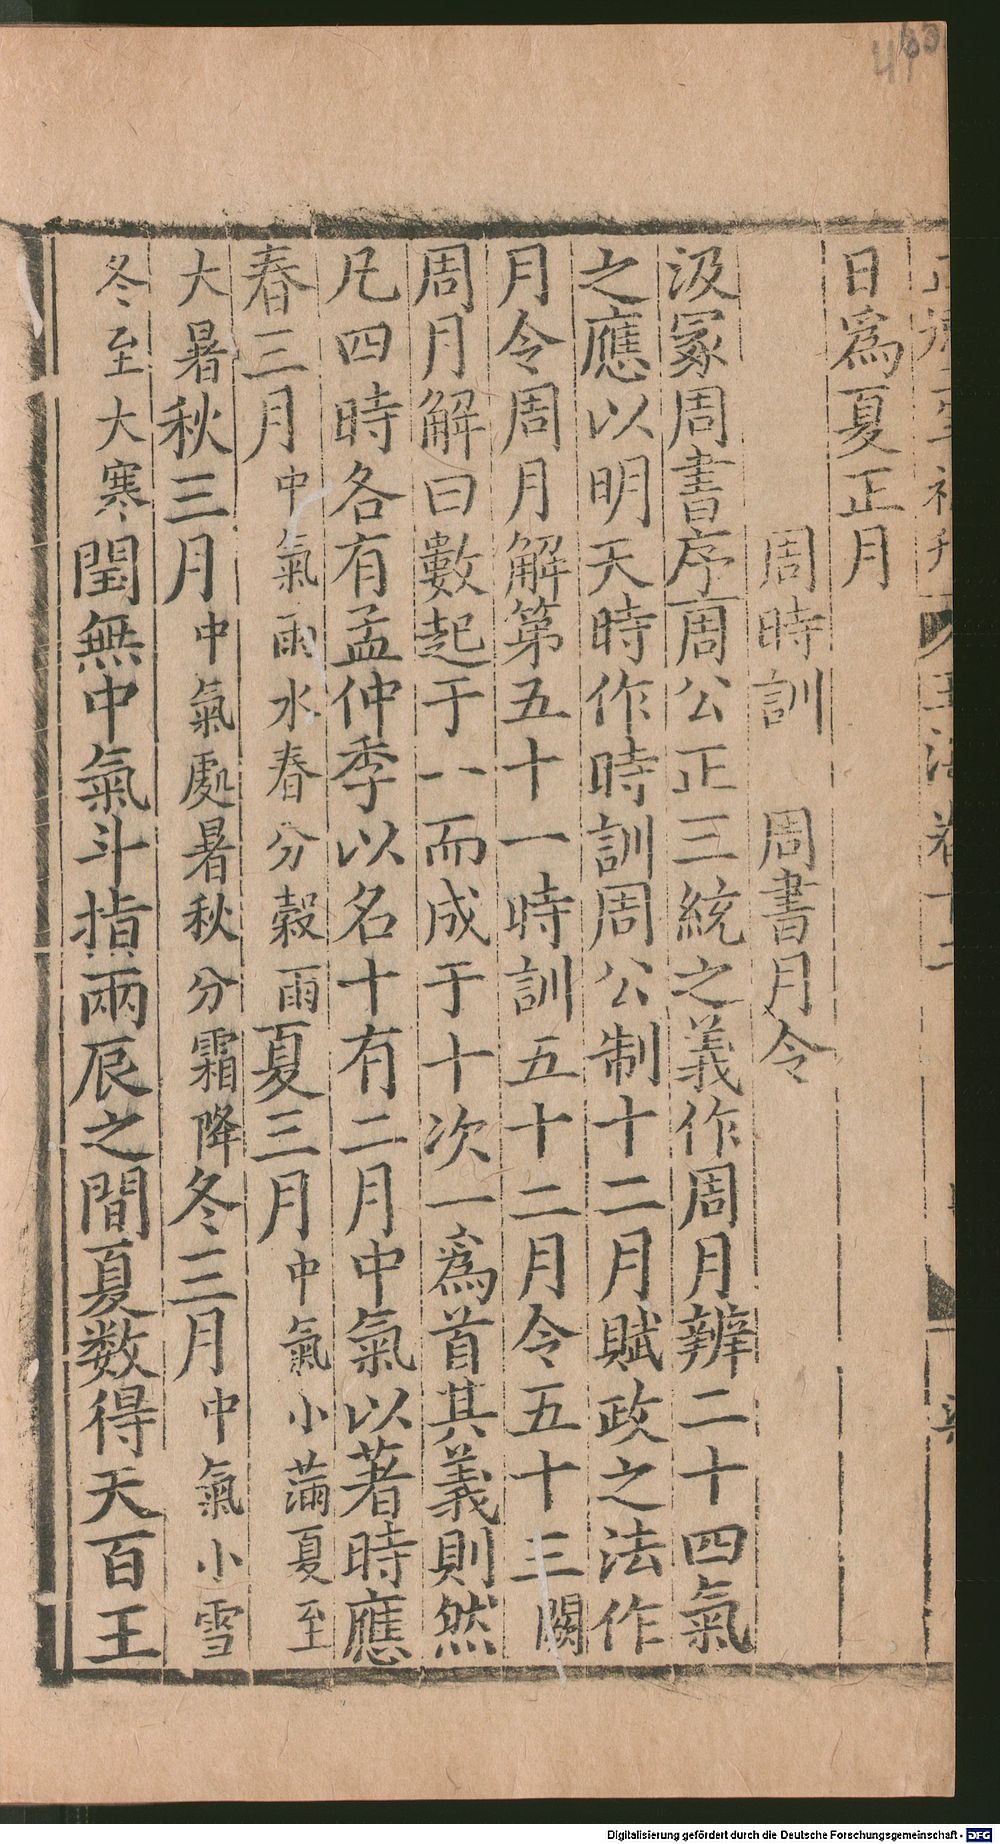 日爲夏正月
周時訓 周書月令
汲冢周書序周公正三統之義作周月辨二十四氣
之應以明天時作時訓周公制十二月賦政之法作
月令周月解第五十一時訓五十二月令五十三闕
周月解曰數起于一而成于十次一爲首其義則然
凡四時各有孟仲季以名十有二月中氣以著時應
春三月中氣雨水春分穀雨夏三月中氣小滿夏至
大暑秋三月中氣處暑秋分霜降冬三月中氣小雪
冬至大寒閏無中氣斗指兩辰之間夏数得天百王
Digitalisierung gefördert durch die Deutsche Forschungsgemeinschaft - DFG